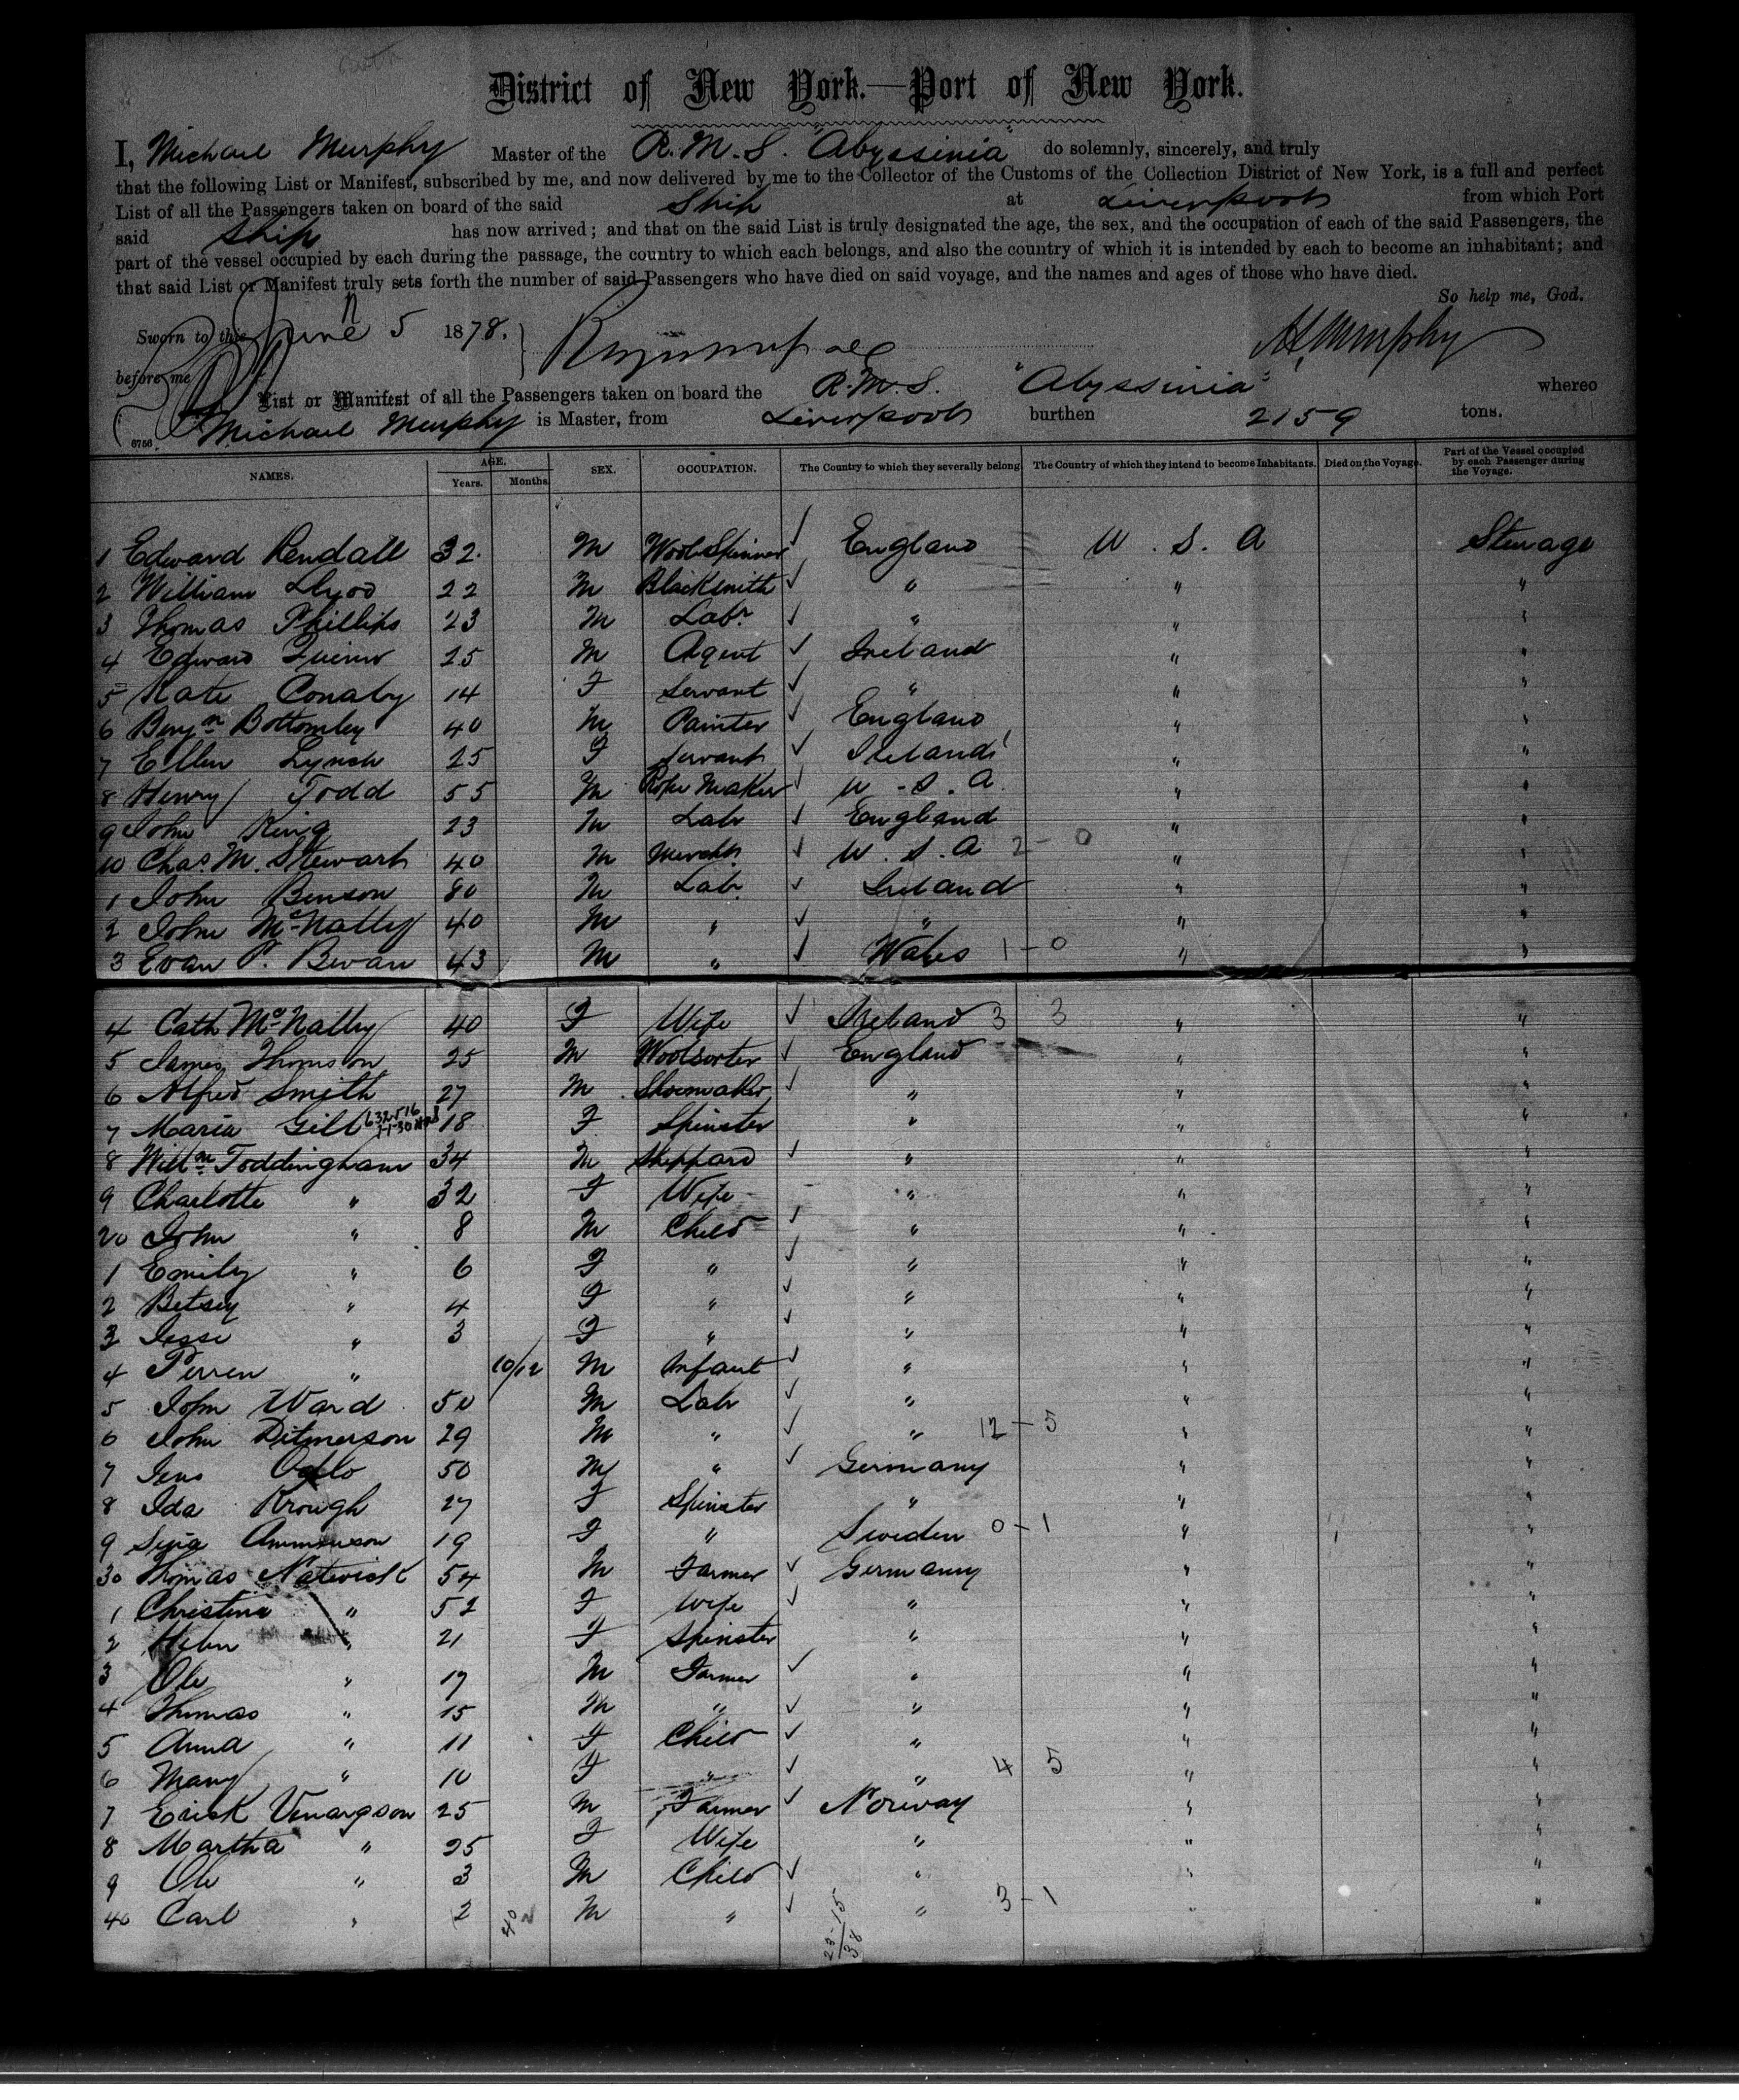 District of New York.—Port of New York.
I, Michael Murphy Master of the R.M.S. "Abyssinia" do solemnly, sincerely, and truly
that the following List or Manifest, subscribed by me, and now delivered by me to the Collector of the Customs of the Collection District of New York, is a full and perfect
List of all the Passengers taken on board of the said Ship at Liverpool from which Port
said Ship has now arrived; and that on the said List is truly designated the age, the sex, and the occupation of each of the said Passengers, the
part of the vessel occupied by each during the passage, the country to which each belongs, and also the country of which it is intended by each to become an inhabitant; and
that said List or Manifest truly sets forth the number of said Passengers who have died on said voyage, and the names and ages of those who have died.
So help me, God.
Sworn to this June 5 1878. Murphy
before me
List or Manifest of all the Passengers taken on board the R.M.S. "Abyssinia" whereo
Michael Murphy is Master, from Liverpool burthen 2159 tons.
6756
NAMES. AGE. Years. Months. SEX. OCCUPATION. The Country to which they severally belong. The Country of which they intend to become Inhabitants. Died on the Voyage. Part of the Vessel occupied by each Passenger during the Voyage.
1 Edward Rendall 32 M Wool Spinner ✓ England U.S.A Steerage
2 William Llyod 22 M Blacksmith ✓ " " "
3 Thomas Phillips 23 M Labr ✓ " " "
4 Edward 25 M Agent ✓ Ireland " "
5 Kate Conaby 14 F Servant ✓ " " "
6 Benjn Bottomley 40 M Painter ✓ England " "
7 Ellen Lynch 25 F Servant ✓ Ireland " "
8 Henry Todd 55 M Rope Maker ✓ U.S.A. " "
9 John King 23 M Labr ✓ England " "
10 Chas. M. Stewart 40 M Mercht ✓ U.S.A 2-0 " "
1 John Benson 80 M Labr ✓ Ireland " "
2 John McNally 40 M " ✓ " " "
3 Evan P. Bevan 43 M " ✓ Wales 1-0 " "
4 Cath McNally 40 F Wife ✓ Ireland 3 3 " "
5 James Thomson 25 M Woolsorter ✓ England " "
6 Alfred Smith 27 M Shoemaker ✓ " " "
7 Maria Gill 18 F Spinster " " "
8 Willm Toddingham 34 M Sheppard ✓ " " "
9 Charlotte " 32 F Wife - " " "
20 John " 8 M Child ✓ " " "
1 Emily " 6 F " ✓ " " "
2 Betsey " 4 F " ✓ " " "
3 Jesse " 3 F " ✓ " " "
4 Perren " 10/12 M Infant ✓ " " "
5 John Ward 50 M Labr ✓ " " "
6 John Ditmerson 29 M " ✓ " 12-5 " "
7 Jens 50 M " ✓ Germany " "
8 Ida Krough 27 F Spinster " " "
9 19 F " Sweden 0-1 " "
30 Thomas Natwick 54 M Farmer ✓ Germany " "
1 Christina " 52 F Wife ✓ " " "
2 Helen " 21 F Spinster " " "
3 Ole " 17 M Farmer ✓ " " "
4 Thomas " 15 M " ✓ " " "
5 Anna " 11 F Child ✓ " " "
6 Mary " 10 F " ✓ " 4 5 " "
7 Erick Venargson 25 M Farmer ✓ Norway " "
8 Martha " 25 F Wife " " "
9 Ole " 3 M Child ✓ " " "
40 Carl " 2 M " ✓ " 3-1 " "
40
23-15
38